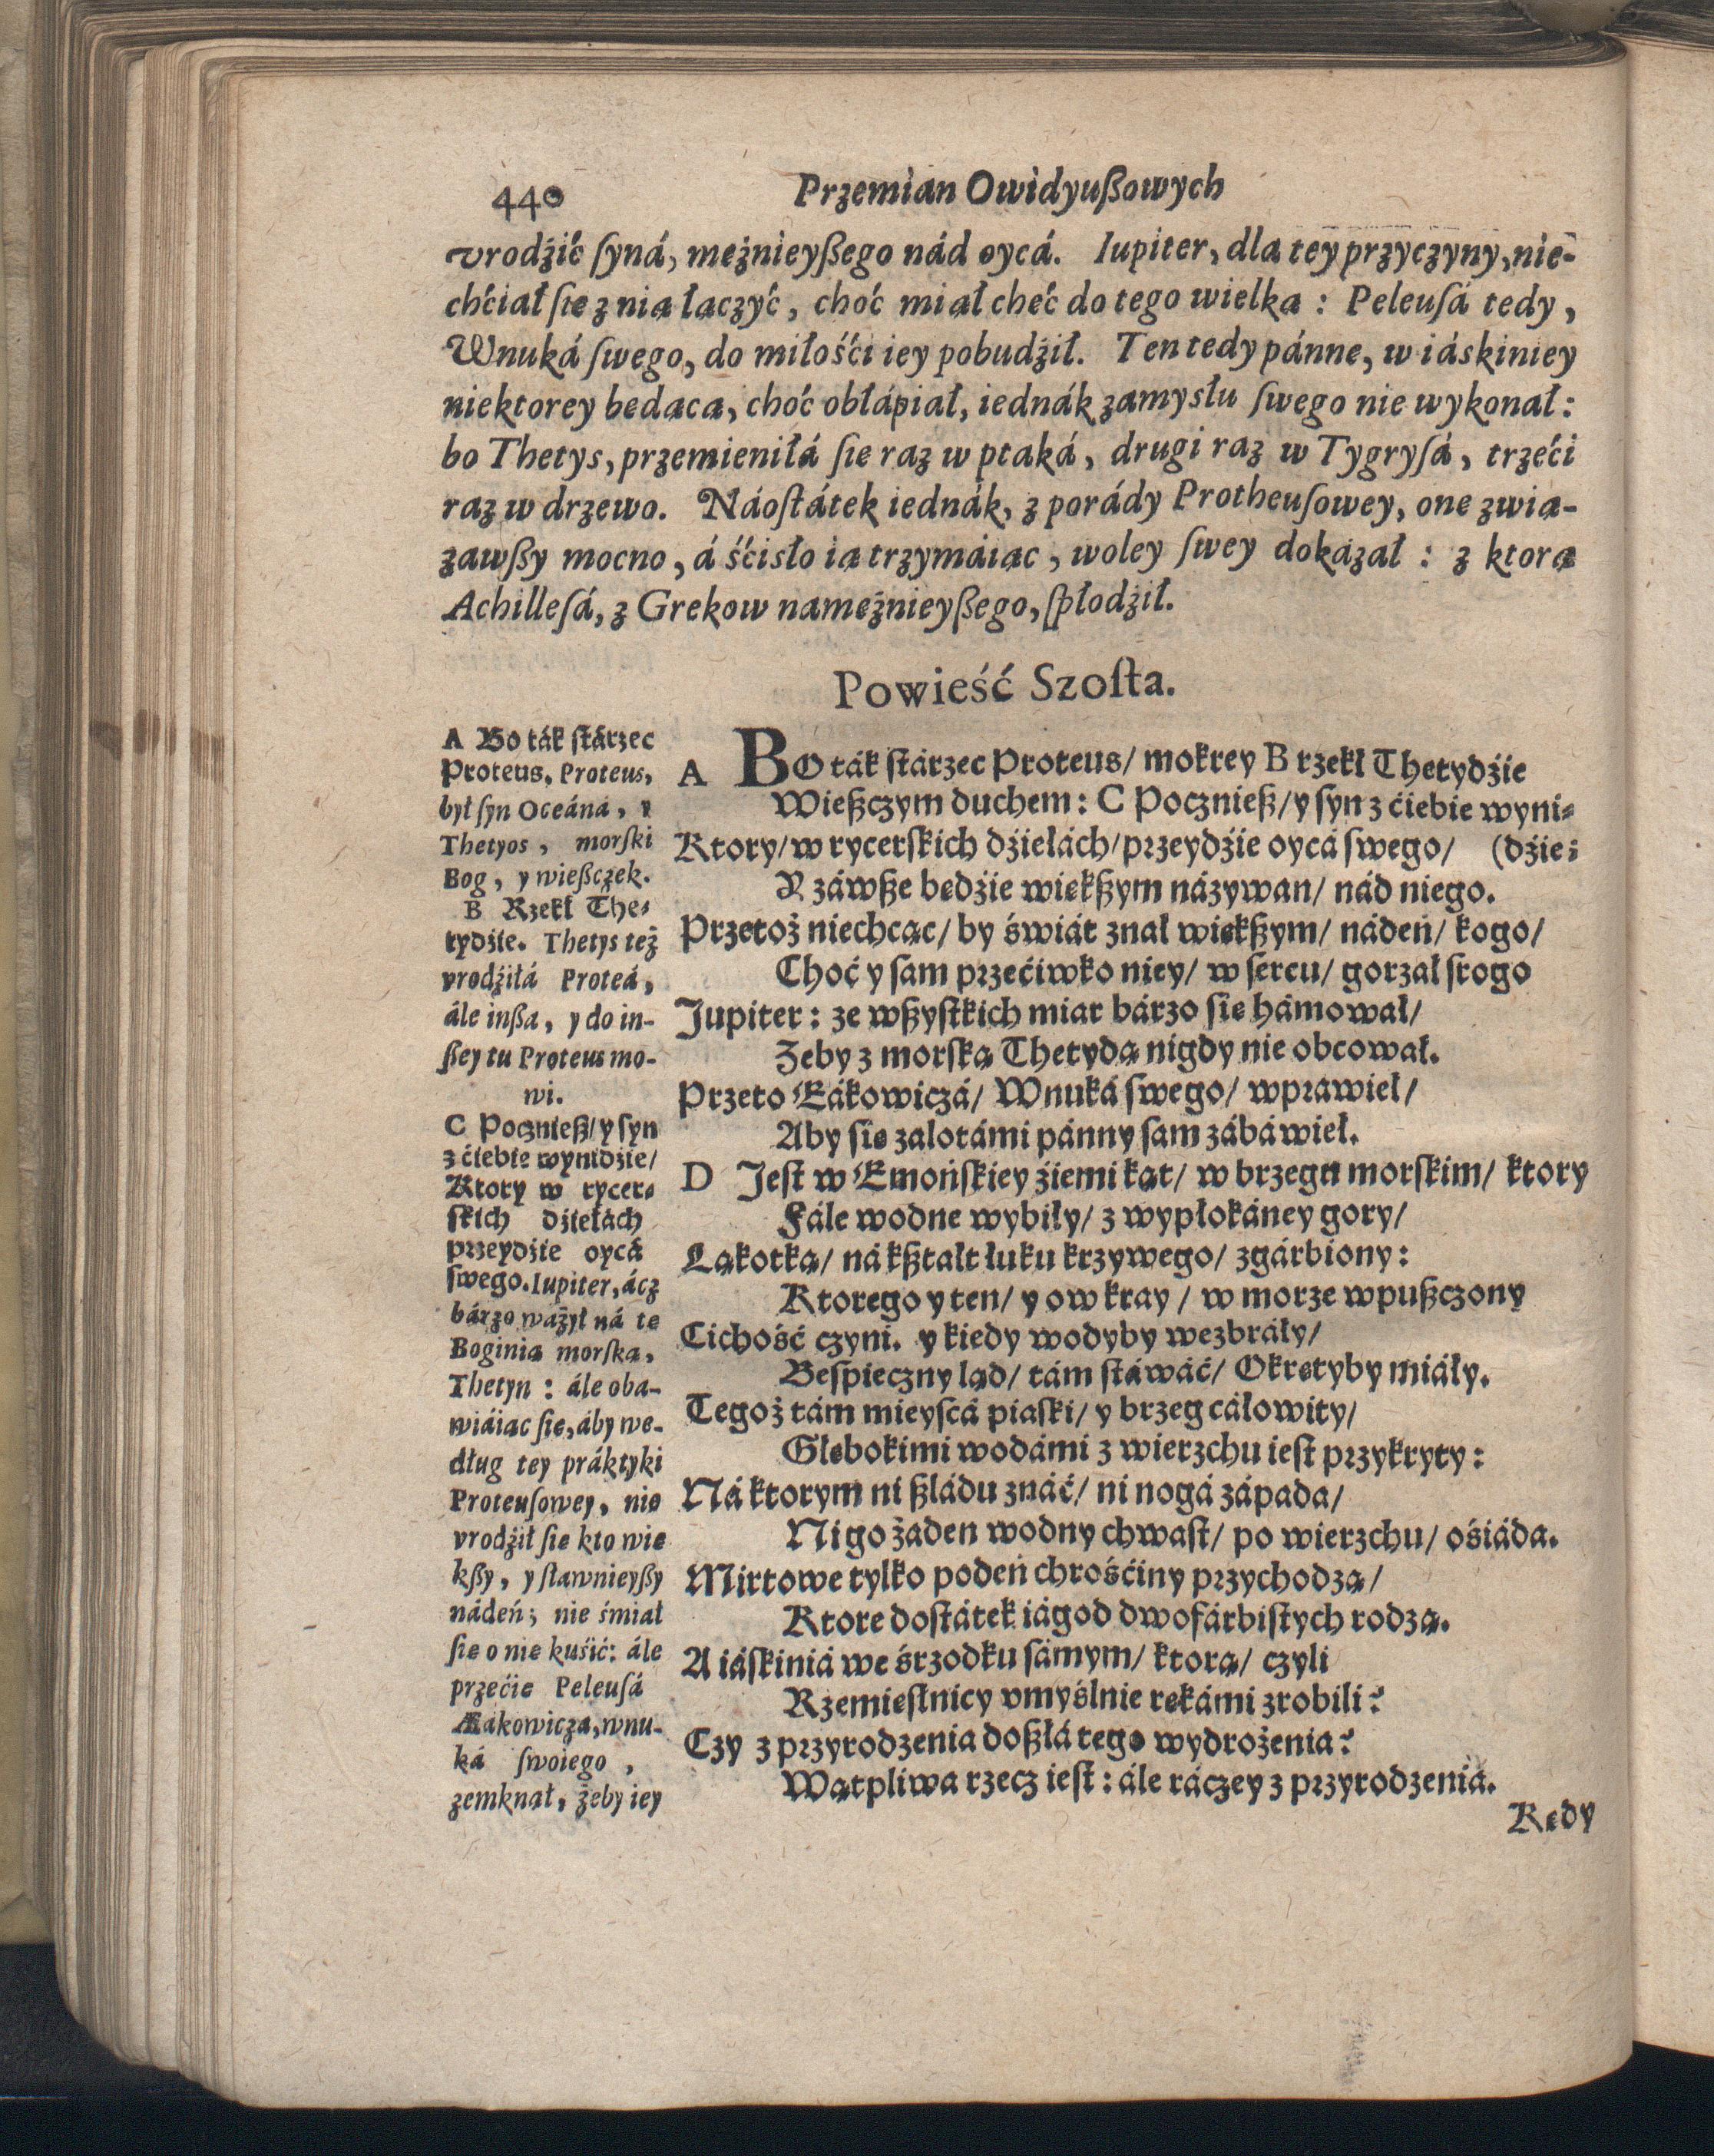 440 Przemian Owidyußowych
vrodźić ſyná, mężnieyßego nád oycá. Iupiter, dla tey przyczyny, nie-
chćiał ſie z nią łączyć, choć miał chęć do tego wielką : Peleuſá tedy,
Wnuká ſwego, do miłośći iey pobudźił. Ten tedy pánnę, w iáskiniey
niektorey będącą, choć obłápiał, iednák zamysłu ſwego nie wykonał:
bo Thetys, przemieniłá ſie raz w ptaká, drugi raz w Tygryſá, trzeći
raz w drzewo. Náoſtátek iednák, z porády Protheuſowey, onę zwią-
zawßy mocno, á śćisło ią trzymáiąc, woley ſwey dokazał : z ktorą
Achilleſá, z Grekow namężnieyßego, ſpłodźił.
Powieść Szoſta.
A BO ták ſtárzec Proteus/ mokrey B rzekł Thetydźie
Wießczym duchem: C Pocznieß/ y ſyn z ćiebie wyni-
Ktory/ w rycerſkich dźiełách/ przeydźie oycá ſwego/ (dźie:
Y záwße będźie więkßym názywan/ nád niego.
Przetoż niechcąc/ by świát znał więkßym/ nádeń/ kogo/
Choć y ſam przećiwko niey/ w ſercu/ gorzał ſrogo
Jupiter: ze wßyſtkich miar bárzo ſię hámował/
Zeby z morſką Thetydą nigdy nie obcował.
Przeto Eákowiczá/ Wnuká ſwego/ wprawieł/
Aby ſię zalotámi pánny ſam zábáwieł.
D Jeſt w Emońſkiey źiemi kąt/ w brzegu morſkim/ ktory
Fále wodne wybiły/ z wypłokáney gory/
Ląkotką/ ná kßtałt łuku krzywego/ zgárbiony:
Ktorego y ten/ y ow kray / w morze wpußczony
Cichość czyni. y kiedy wodyby wezbráły/
Beſpieczny ląd/ tám ſtáwáć/ Okrętyby miáły.
Tegoż tám mieyſcá piaſki/ y brzeg cáłowity/
Głębokimi wodámi z wierzchu ieſt przykryty:
Ná ktorym ni ßládu znáć/ ni nogá západa/
Ni go żaden wodny chwaſt/ po wierzchu/ ośiáda.
Mirtowe tylko podeń chrośćiny przychodzą/
Ktore doſtátek iágod dwofárbiſtych rodzą.
A iáſkiniá we śrzodku ſámym/ ktorą/ czyli
Rzemieſłnicy vmyślnie rękámi zrobili?
Czy z przyrodzenia doßłá tego wydrożenia?
Wątpliwa rzecz ieſt: ále ráczey z przyrodzenia.
Kędy
A Bo ták ſtárzec
Proteus. Proteus,
był ſyn Oceáná, y
Thetyos, morſki
Bog, y wießczek.
B Rzekł The-
tydźie. Thetys też
vrodźiłá Proteá,
ále inßa, y do in-
ßey tu Proteus mo-
wi.
C Pocznieß/ y ſyn
z ćiebie wynidźie/
Ktory w rycer-
ſkich dźiełách
przeydźie oycá
ſwego. Iupiter, ácz
bárzo ważył ná tę
Boginią morſką,
Thetyn : ále oba-
wiáiąc ſię, áby we-
dług tey práktyki
Proteuſowey, nie
vrodźił ſię kto wię
kßy, y ſławnieyßy
nádeń; nie śmiał
ſię o nię kuśić: ále
przećię Peleuſá
Æákowicza, wnu-
ká ſwoiego,
zemknął, żeby iey